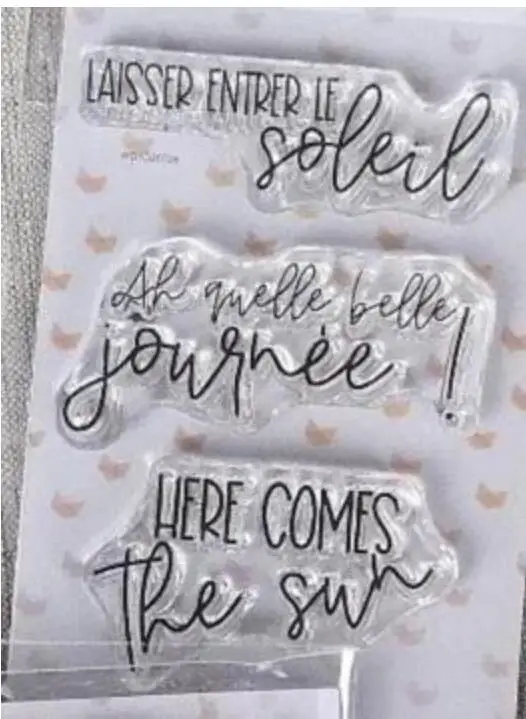 LAISSER ENTRER LE
soleil
Ah quelle belle
journée !
HERE COMES
the sun